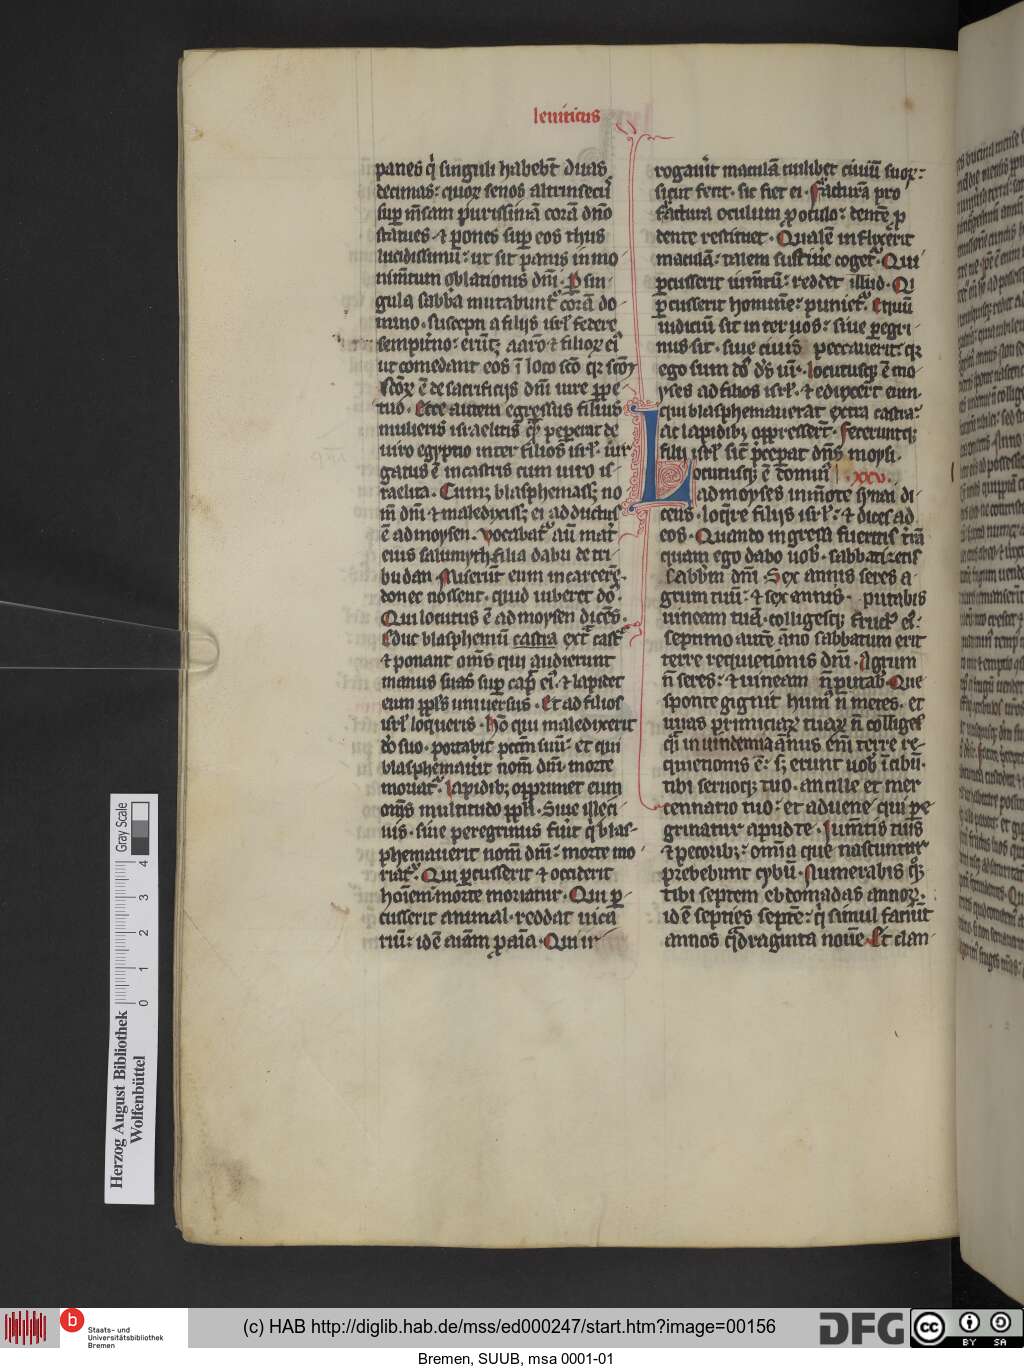 leuiticus
panes q̇ singuli habebt̄ duas
decimas: quoꝝ senos altrinsecꝰ
suꝑ m̄sam purissimā corā dn̄o
statues ⁊ pones suꝑ eos thus
lucidissimū: ut sit panis in mo
nim̄tum oblationis dn̄i. ꝑ sin-
gula sabb̄a mutabunt᷑ corā do-
mino. suscepti a filijs isrl̄ federe
sempit̄no: erūtꝫ aarō ⁊ filioꝝ eiꝰ
ut comedant eos ī loco scō qꝛ scm̄
scōꝝ ē de sacrificijs dn̄i iure ꝑpe-
tuo. Ecce autem egressus filius
mulieris israelitis qē peperat de
uiro egyptio inter filios isrl̄. iur
gatus ē incastris cum uiro is-
raelita. Cumꝫ blasphemassꝫ no
m̄ dn̄i ⁊ maledixissꝫ ei adductus
ē ad moysen. vocabat᷑ aū mat̄
eius salumyth filia dabri de tri-
bu dan. Miserūt eum in carcerē.
donec nossent. quid iuberet dō.
Qui locutus ē ad moysen dicēs.
Educ blasphemū castra ext̄ cast᷑
⁊ ponant om̄s qui audierunt
manus suas suꝑ cap̄ eiꝰ. ⁊ lapidet
eum ppl̄s uniuersus. Et ad filios
isrl̄ loqueris. hō qui maledixerit
dō suo. portabit pcc̄m suū: et qui
blasphemau̇it nom̄ dn̄i morte
moriat᷑. Lapidibꝫ opprimet eum
om̄is multitudo ppl̄i. Siue ille ci-
uis. siue peregrinus fu̇it q̇ blas-
phemauerit nom̄ dn̄i: morte mo
riat᷑. Qui ꝑcusserit ⁊ occiderit
hoīem: morte moriatur. Qui ꝑ-
cusserit animal. reddat uica
riū: id ē aīam ꝓ aīa. Qui ir-
rogau̇it maculā cuilibet ciuiū suoꝝ:
sicut fecit. sic fiet ei. Fracturā pro
fractura oculum ꝓ oculo: dentē ꝓ
dente restituet. Qualē inflixerit
maculā: talem sustin̄e coget᷑. Qui
ꝑcusserit ium̄tū: reddet illud. Qi
ꝑcusserit hominē: puniet᷑. Equū
iudiciū sit inter uos: siue ꝑegri-
nus sit. siue ciuis peccauerit: qꝛ
ego sum dn̄s ds̄ ur̄. locutusqꝫ ē mo-
yses ad filios isrl̄. ⁊ eduxert̄ eum
qui blasphemauerat extra castra:
ac lapidibꝫ oppressert̄. Feceruntqꝫ
filij isrl̄ sic̄ p̄cepat dn̄s moysi.
Locutusqꝫ ē dominꝰ .xxv.
ad moyses in mōte synai di-
cens. loq̄re filijs isrl̄: ⁊ dices ad
eos. Quando ingressi fueritis t̄rā
quam ego dabo uob̄. sabbatizetis
sabbm̄ dn̄i. Sex annis seres a-
grum tuū: ⁊ sex annis. putabis
uineam tuā. colligesqꝫ fructꝰ eiꝰ:
septimo autē āno sabbatum erit
terre requietionis dn̄i. Agrum
n̄ seres: ⁊ uineam n̄ putab̄. Que
sponte gignit humꝰ n̄ metes. et
uuas primiciaꝝ tuaꝝ n̄ colliges
q̄si in uindemia: annus en̄i terre re-
quietionis ē: sꝫ erunt uob̄ ī cibū.
tibi seruoqꝫ tuo. ancille et mer
cennario tuo: et aduene qui pe
grinatur apud te. Ium̄tis tuis
⁊ pecoribꝫ: omīa que nascuntur
prebebunt cybū. Numerabis qꝫ
tibi septem ebdomadas annoꝝ:
id ē septies septē: q̄ simul faciūt
annos q̄draginta nouē. Et clan-
Herzog August Bibliothek
Wolfenbüttel
0 1 2 3 4
Gray Scale
b
Staats- und
Universitätsbibliothek
Bremen
(c) HAB http://diglib.hab.de/mss/ed000247/start.htm?image=00156
DFG
cc
BY SA
Bremen, SUUB, msa 0001-01